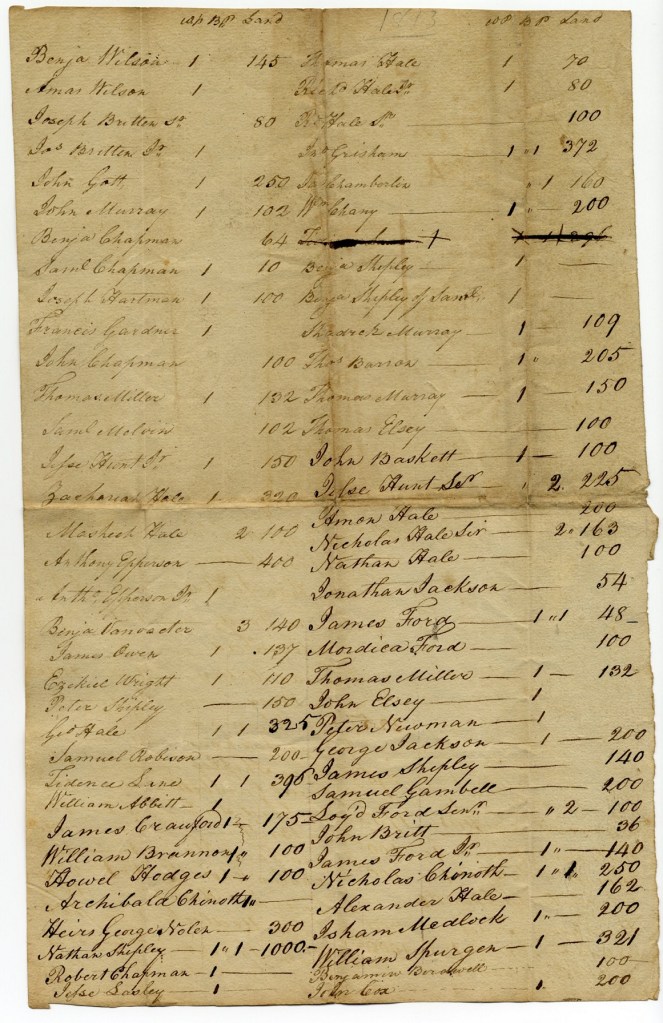 wp Bp Land
Benja Wilson — 1 145
Amas Wilson 1
Joseph Britten Sr 80
Jos Britten Jr 1
John Gott 1 250
John Murray 1 102
Benja Chapman 64
Saml Chapman 1 10
Joseph Hartman 1 100
Francis Gardner 1
John Chapman 100
Thomas Miller 1 132
Saml Melvin 102
Jesse Hunt Jr 1 150
Zachariah Hale 1 320
Mashech Hale 2 100
Anthony Epperson — 400
Antho Epperson Jr 1
Benja Vanvacter 3 140
James Owen 1 137
Ezekiel Wright 1 110
Peter Shipley — 150
Geo Hale 1 1 325
Samuel Robison — 200
Tidence Lane 1 1 396
William Abbitt — 1
James Crawford 1 — 175
William Brannon 1 " 100
Howel Hodges 1 — 100
Archibald Chinoth 1 "
Heirs George Nolen — 300
Nathan Shipley — 1 " 1 — 1000
Robert Chapman — 1 —
Jesse Lasley 1
wp Bp Land
Thomas Hale 1 70
Richd Hale Jr 1 80
Rd Hale Sr — 100
Jno Grisham — 1 " 1 372
Jas Chamberlin " 1 160
Wm Chany — 1 " 200
Benja Shipley — 1 —
Benja Shipley of Saml 1 —
Shadrck Murray — 1 — 109
Thos Barron — 1 " 205
Thomas Murray — 1 — 150
Thomas Elsey — 100
John Baskett — 1 — 100
Jesse Hunt Senr — " 2 225
Amon Hale 200
Nicholas Hale Sir — 2 " 163
Nathan Hale — 100
Jonathan Jackson — 54
James Ford — 1 " 1 48
Mordica Ford — 100
Thomas Miller — 1 — 132
John Elsey — 1
Peter Newman — 1
George Jackson — 1 — 200
James Shipley — 140
Samuel Gambell — 200
Loy'd Ford Senr — " 2 — 100
John Britt 36
James Ford Jr — 1 " — 140
Nicholas Chinoth — 1 " 1 250
Alexander Hale — 162
Isham Medlock 1 " — 200
William Spurgen — 1 — 321
Benjamin 100
John Cox 1 200